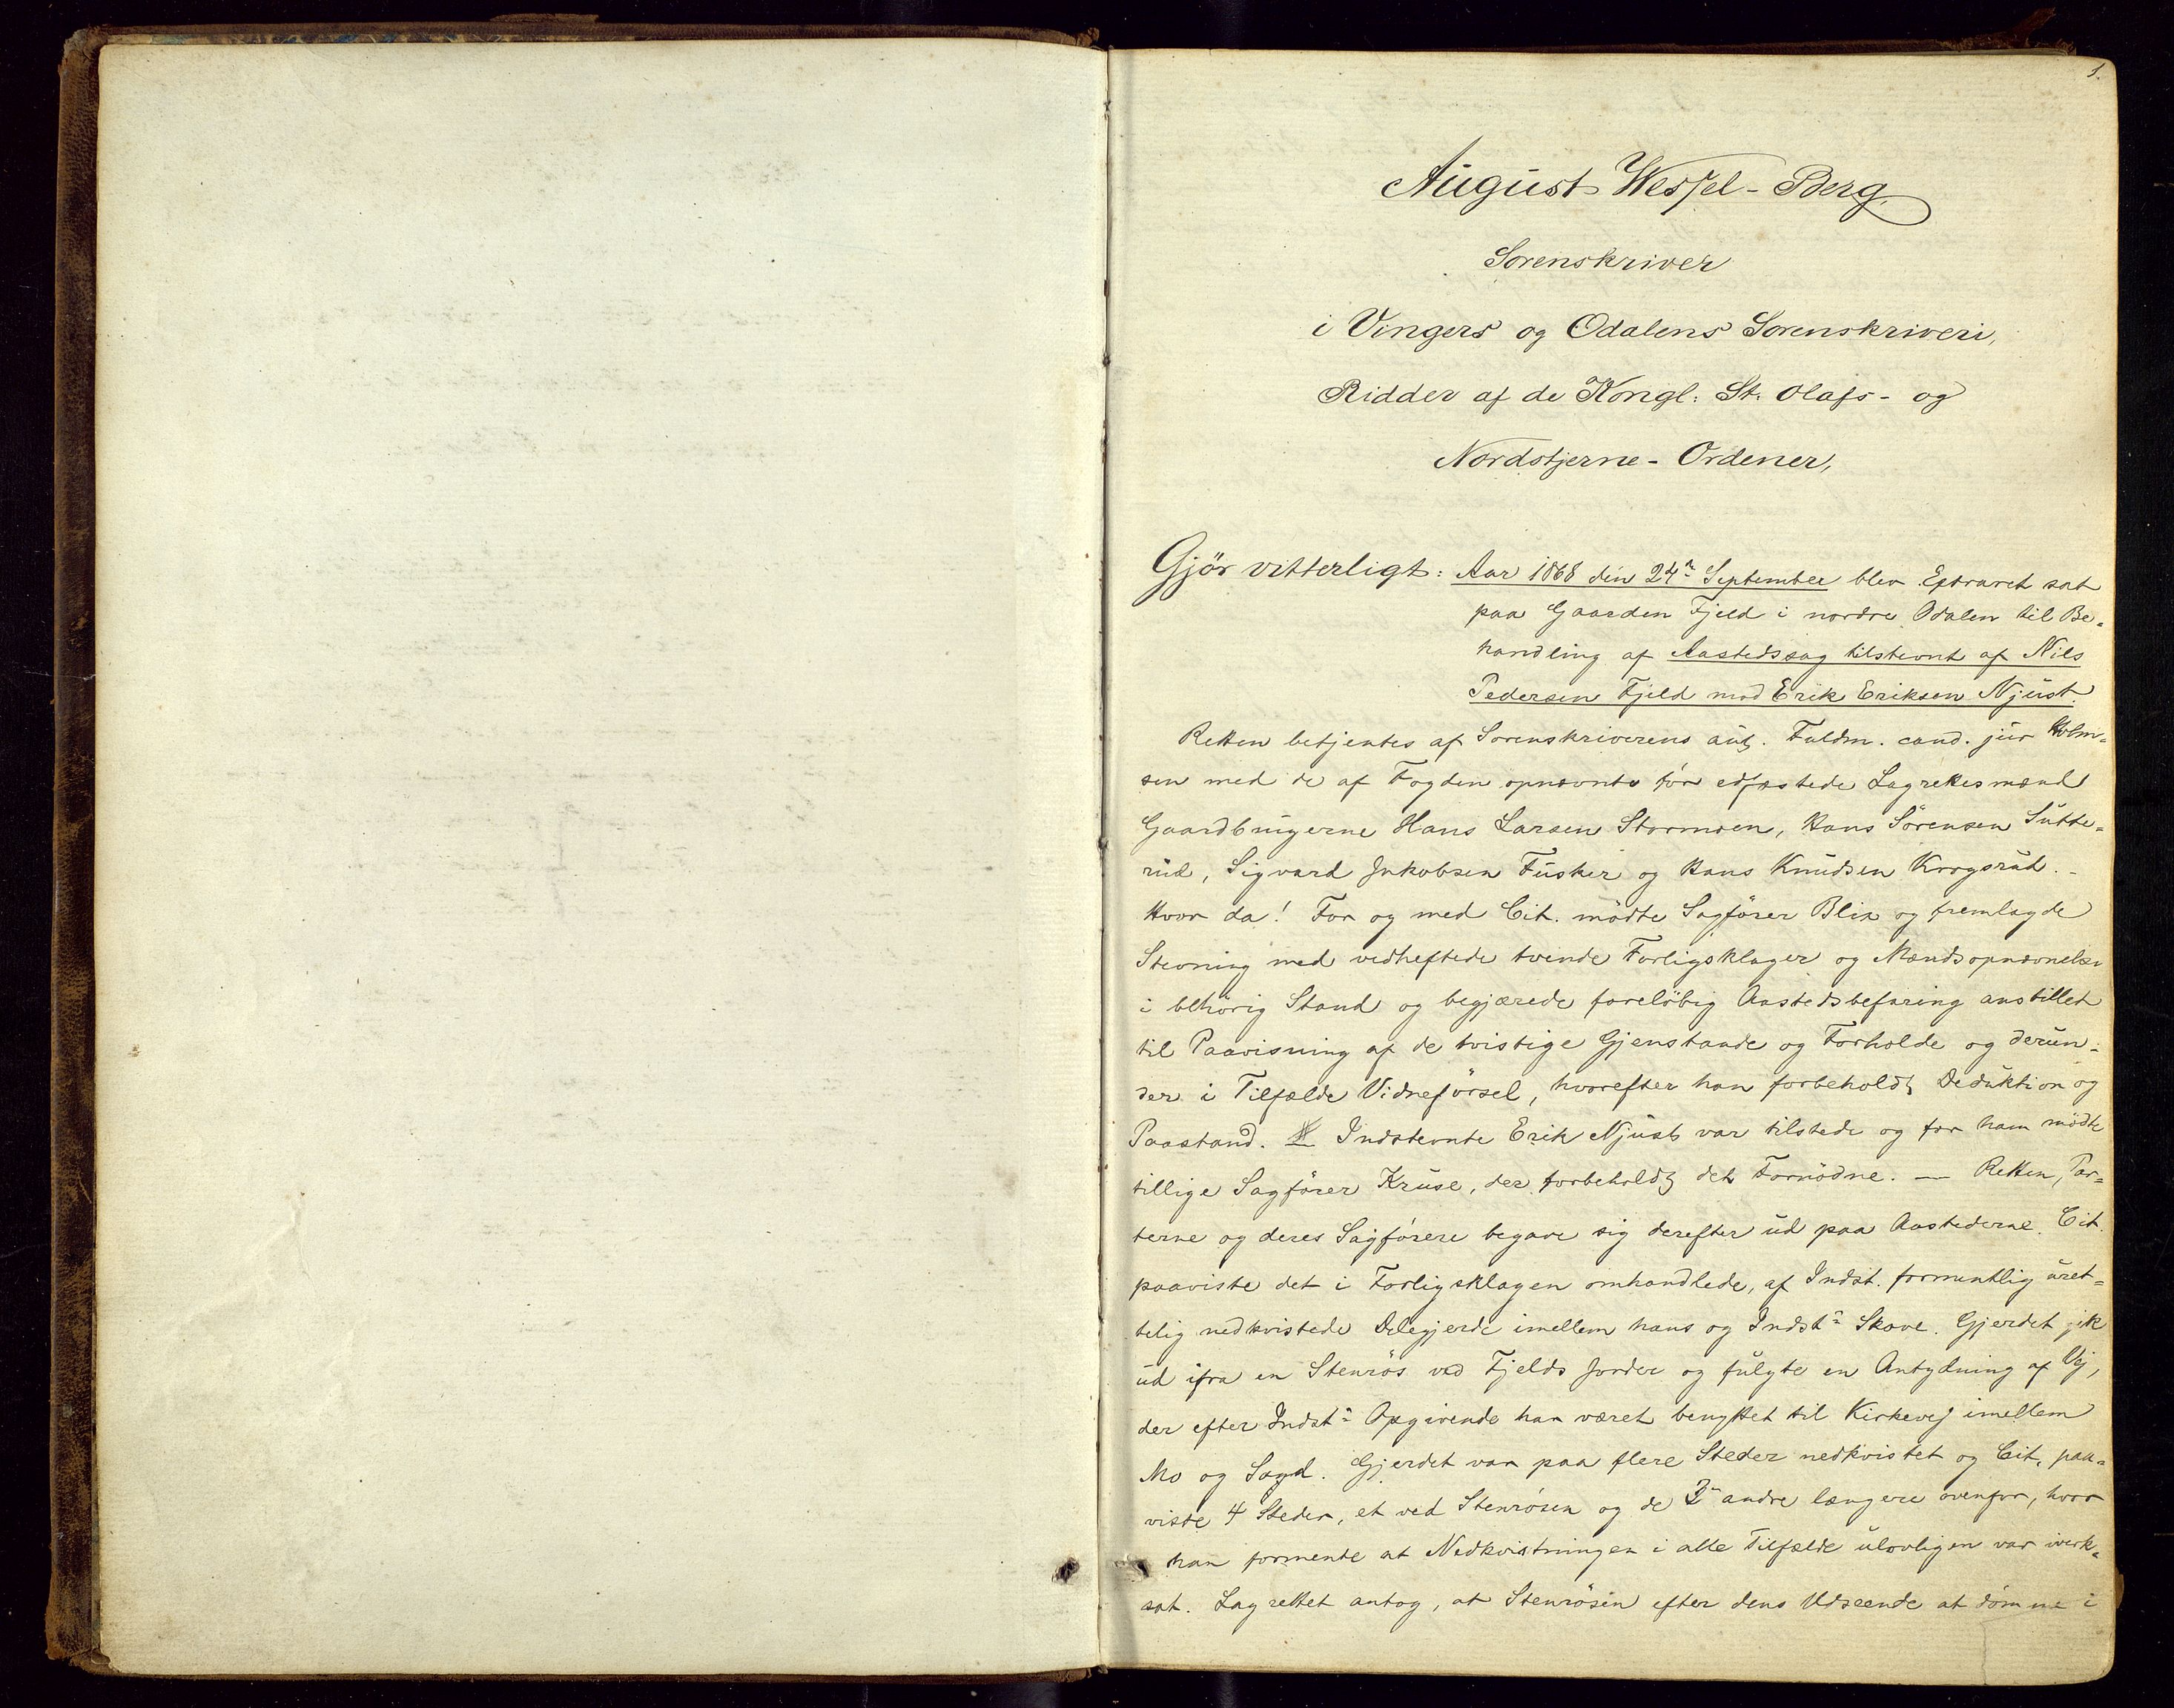 1.
August Wessel-Berg
Sorenskriver
i Vingers og Odalens Sorenskriveri,
Ridder af de Kongl: St. Olafs- og
Nordstjerne-Ordener,
Gjör vitterligt: Aar 1868 den 24n September blev Extraret sat
paa Gaarden Fjeld i nordre Odalen til Be-
handling af Aastedssag tilstevnt af Nils
Pedersen Fjeld mod Erik Eriksen Njust.
Retten betjentes af Sorenskriverens aut. Fuldm. cand. jur Holm-
sen med de af Fogden opnævnte för edfæstede Lagrettesmænd
Gaardbrugerne Hans Larsen Stormoen, Hans Sörensen Sutte-
rud, Sigvard Jakobsen Fusker og Hans Knudsen Krogsrud. -
Hvor da! For og med Cit. mödte Sagförer Blix og fremlagde
Stevning med vedheftede tvende Forligsklager og Mændsopnævnelse
i behörig Stand og begjærede foreløbig Aastedsbefaring anstillet
til Paavisning af de tvistige Gjenstande og Forholde og derun-
der i Tilfælde Vidneförsel, hvorefter han forbeholdt Deduktion og
Paastand. Indstevnte Erik Njust var tilstede og for ham mödte
tillige Sagförer Kruse, der forbeholdt det Fornödne. — Retten, Par-
terne og deres Sagförere begave sig derefter ud paa Aastederne. Cit.
paaviste det i Forligsklagen omhandlede, af Indst. formentlig uret-
telig nedkvistede Delegjerde imellem hans og Indsts Skove. Gjerdet gik
ud ifra en Stenrös ved Fjelds Jorder og fulgte en Antydning af Vej,
der efter Indsts Opgivende har været benyttet til Kirkevej imellem
Mo og Sand. Gjerdet var paa flere Steder nedkvistet og Cit. paa-
viste 4 Steder, et ved Stenrösen og de 3 andre længere ovenfor, hvor
han formente at Nedkvistningen i alle Tilfælde ulovligen var iverk-
sat. Lagrettet antog, at Stenrösen efter dens Udseende at dömme i